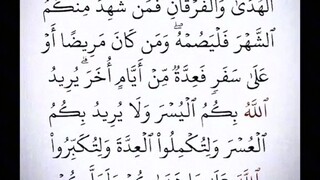 ٱلۡهُدَىٰ وَٱلۡفُرۡقَانِۚ فَمَن شَهِدَ مِنكُمُ
ٱلشَّهۡرَ فَلۡيَصُمۡهُۖ وَمَن كَانَ مَرِيضًا أَوۡ
عَلَىٰ سَفَرٖ فَعِدَّةٞ مِّنۡ أَيَّامٍ أُخَرَۗ يُرِيدُ
ٱللَّهُ بِكُمُ ٱلۡيُسۡرَ وَلَا يُرِيدُ بِكُمُ
ٱلۡعُسۡرَ وَلِتُكۡمِلُواْ ٱلۡعِدَّةَ وَلِتُكَبِّرُواْ